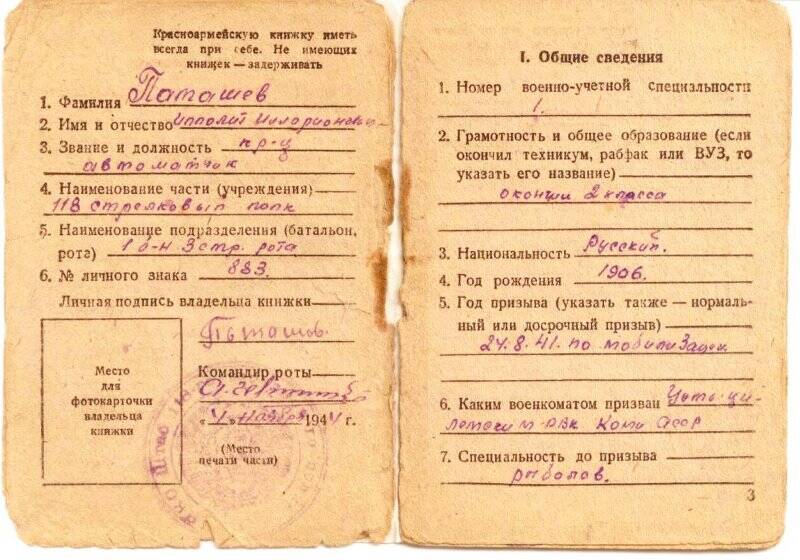 Красноармейскую книжку иметь
всегда при себе. Не имеющих
книжек — задерживать
1. Фамилия Паташев
2. Имя и отчество Ипполит Илларионович
3. Звание и должность кр-ц
автоматчик
4. Наименование части (учреждения)
118 стрелковый полк
5. Наименование подразделения (батальон,
рота) 1 б-н 3 стр. рота
6. № личного знака 883
Личная подпись владельца книжки
Паташев
Место
для
фотокарточки
владельца
книжки
Командир роты
«4» ноября 1944 г.
(Место
печати части)
I. Общие сведения
1. Номер военно-учетной специальности
1.
2. Грамотность и общее образование (если
окончил техникум, рабфак или ВУЗ, то
указать его название)
окончил 2 класса
3. Национальность Русский.
4. Год рождения 1906.
5. Год призыва (указать также — нормаль-
ный или досрочный призыв)
24.8.41. по мобилизации
6. Каким военкоматом призван Усть-ци-
лемским РВК Коми АССР
7. Специальность до призыва
рыболов.
3